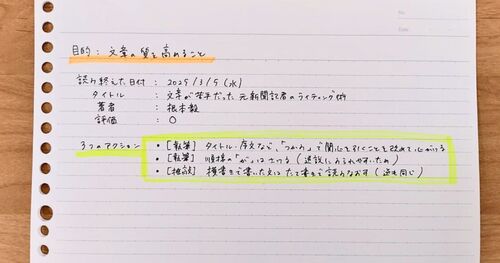 No.
Date
目的：文章の質を高めること
読み終えた日付：2025/3/5（水）
タイトル：文章が苦手だった元新聞記者のライティング術
著者：根本毅
評価：○
3つのアクション
・［執筆］タイトル・序文など、「つかみ」で関心を引くことを改めて心がける
・［執筆］順接の「が」はさける（逆説に
・［推敲］横書きで書いた文はたて書きで読みなおす（逆も同じ）